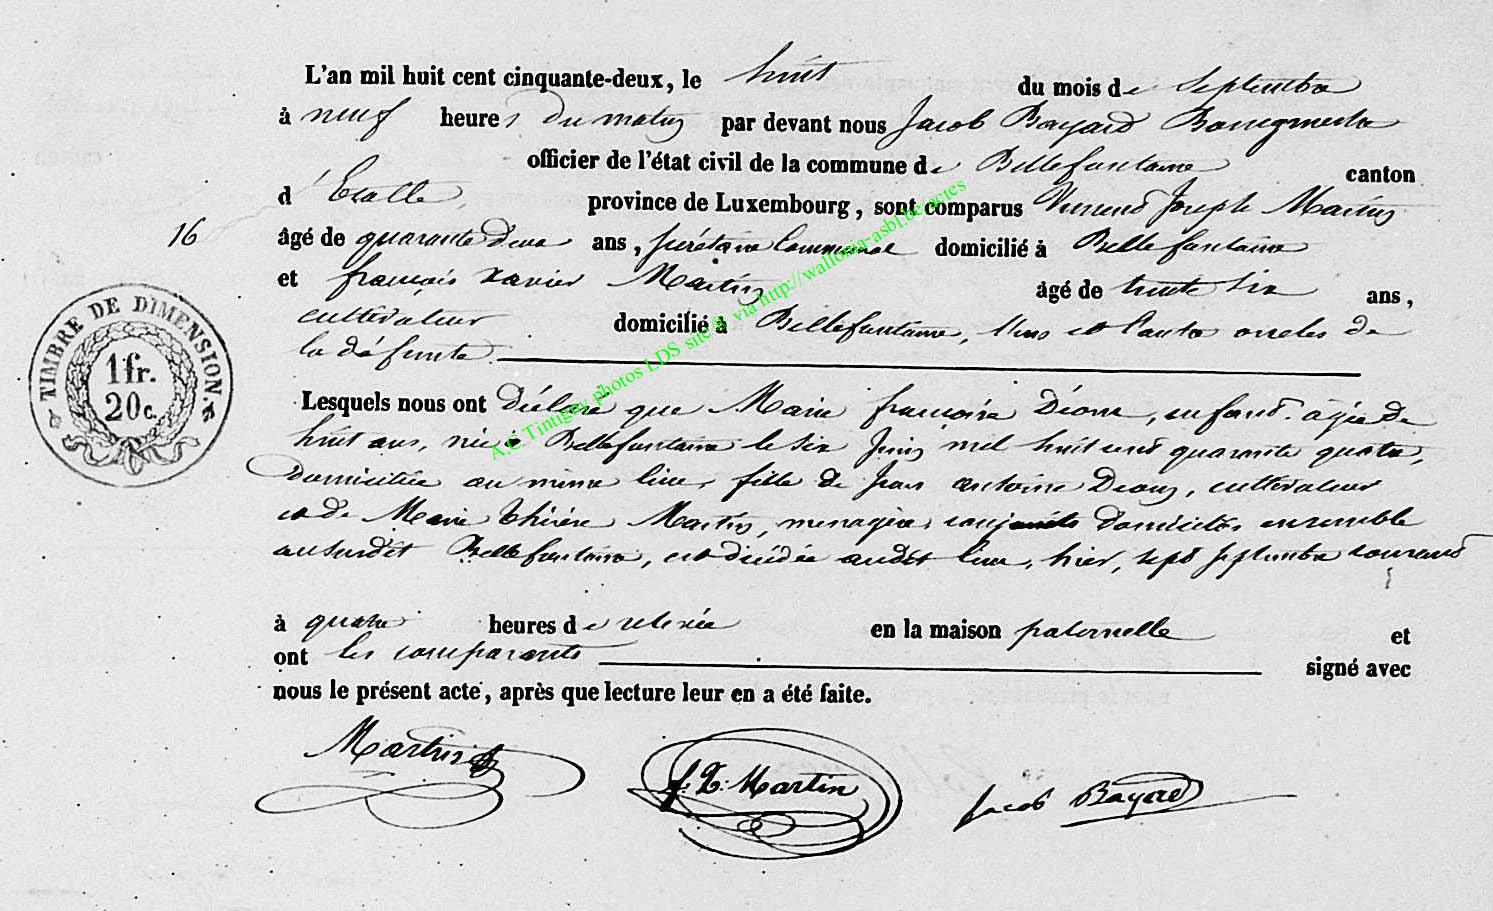 L'an mil huit cent cinquante-deux, le huit du mois de Septembre
à neuf heures du matin par devant nous Jacob Bayard Bourgmestre
officier de l'état civil de la commune de Bellefontaine canton
d'Etalle, province de Luxembourg, sont comparus Vincent Joseph Martin
16 âgé de quarante deux ans, secrétaire Communal domicilié à Bellefontaine
et françois xavier Martin âgé de trente six ans,
cultivateur domicilié à Bellefontaine, l'un et l'autre oncles de
la défunte.
Lesquels nous ont déclaré que Marie françoise Dion, enfant âgée de
huit ans, née à Bellefontaine le six Juin mil huit cent quarante quatre,
domiciliée au même lieu, fille de Jean antoine Dion, cultivateur
et de Marie thérèse Martin, menagère, conjoints domiciliés ensemble
au susdit Bellefontaine, est décédée audit lieu, hier, sept septembre courant
à quatre heures de relevée en la maison paternelle et
ont les comparants signé avec
nous le présent acte, après que lecture leur en a été faite.
Martin
f. X. Martin
Jacob Bayard
TIMBRE DE DIMENSION.
1 fr.
20 c.
A.C Tintigny photos LDS site @ via http://wallonia-asbl.be/actes